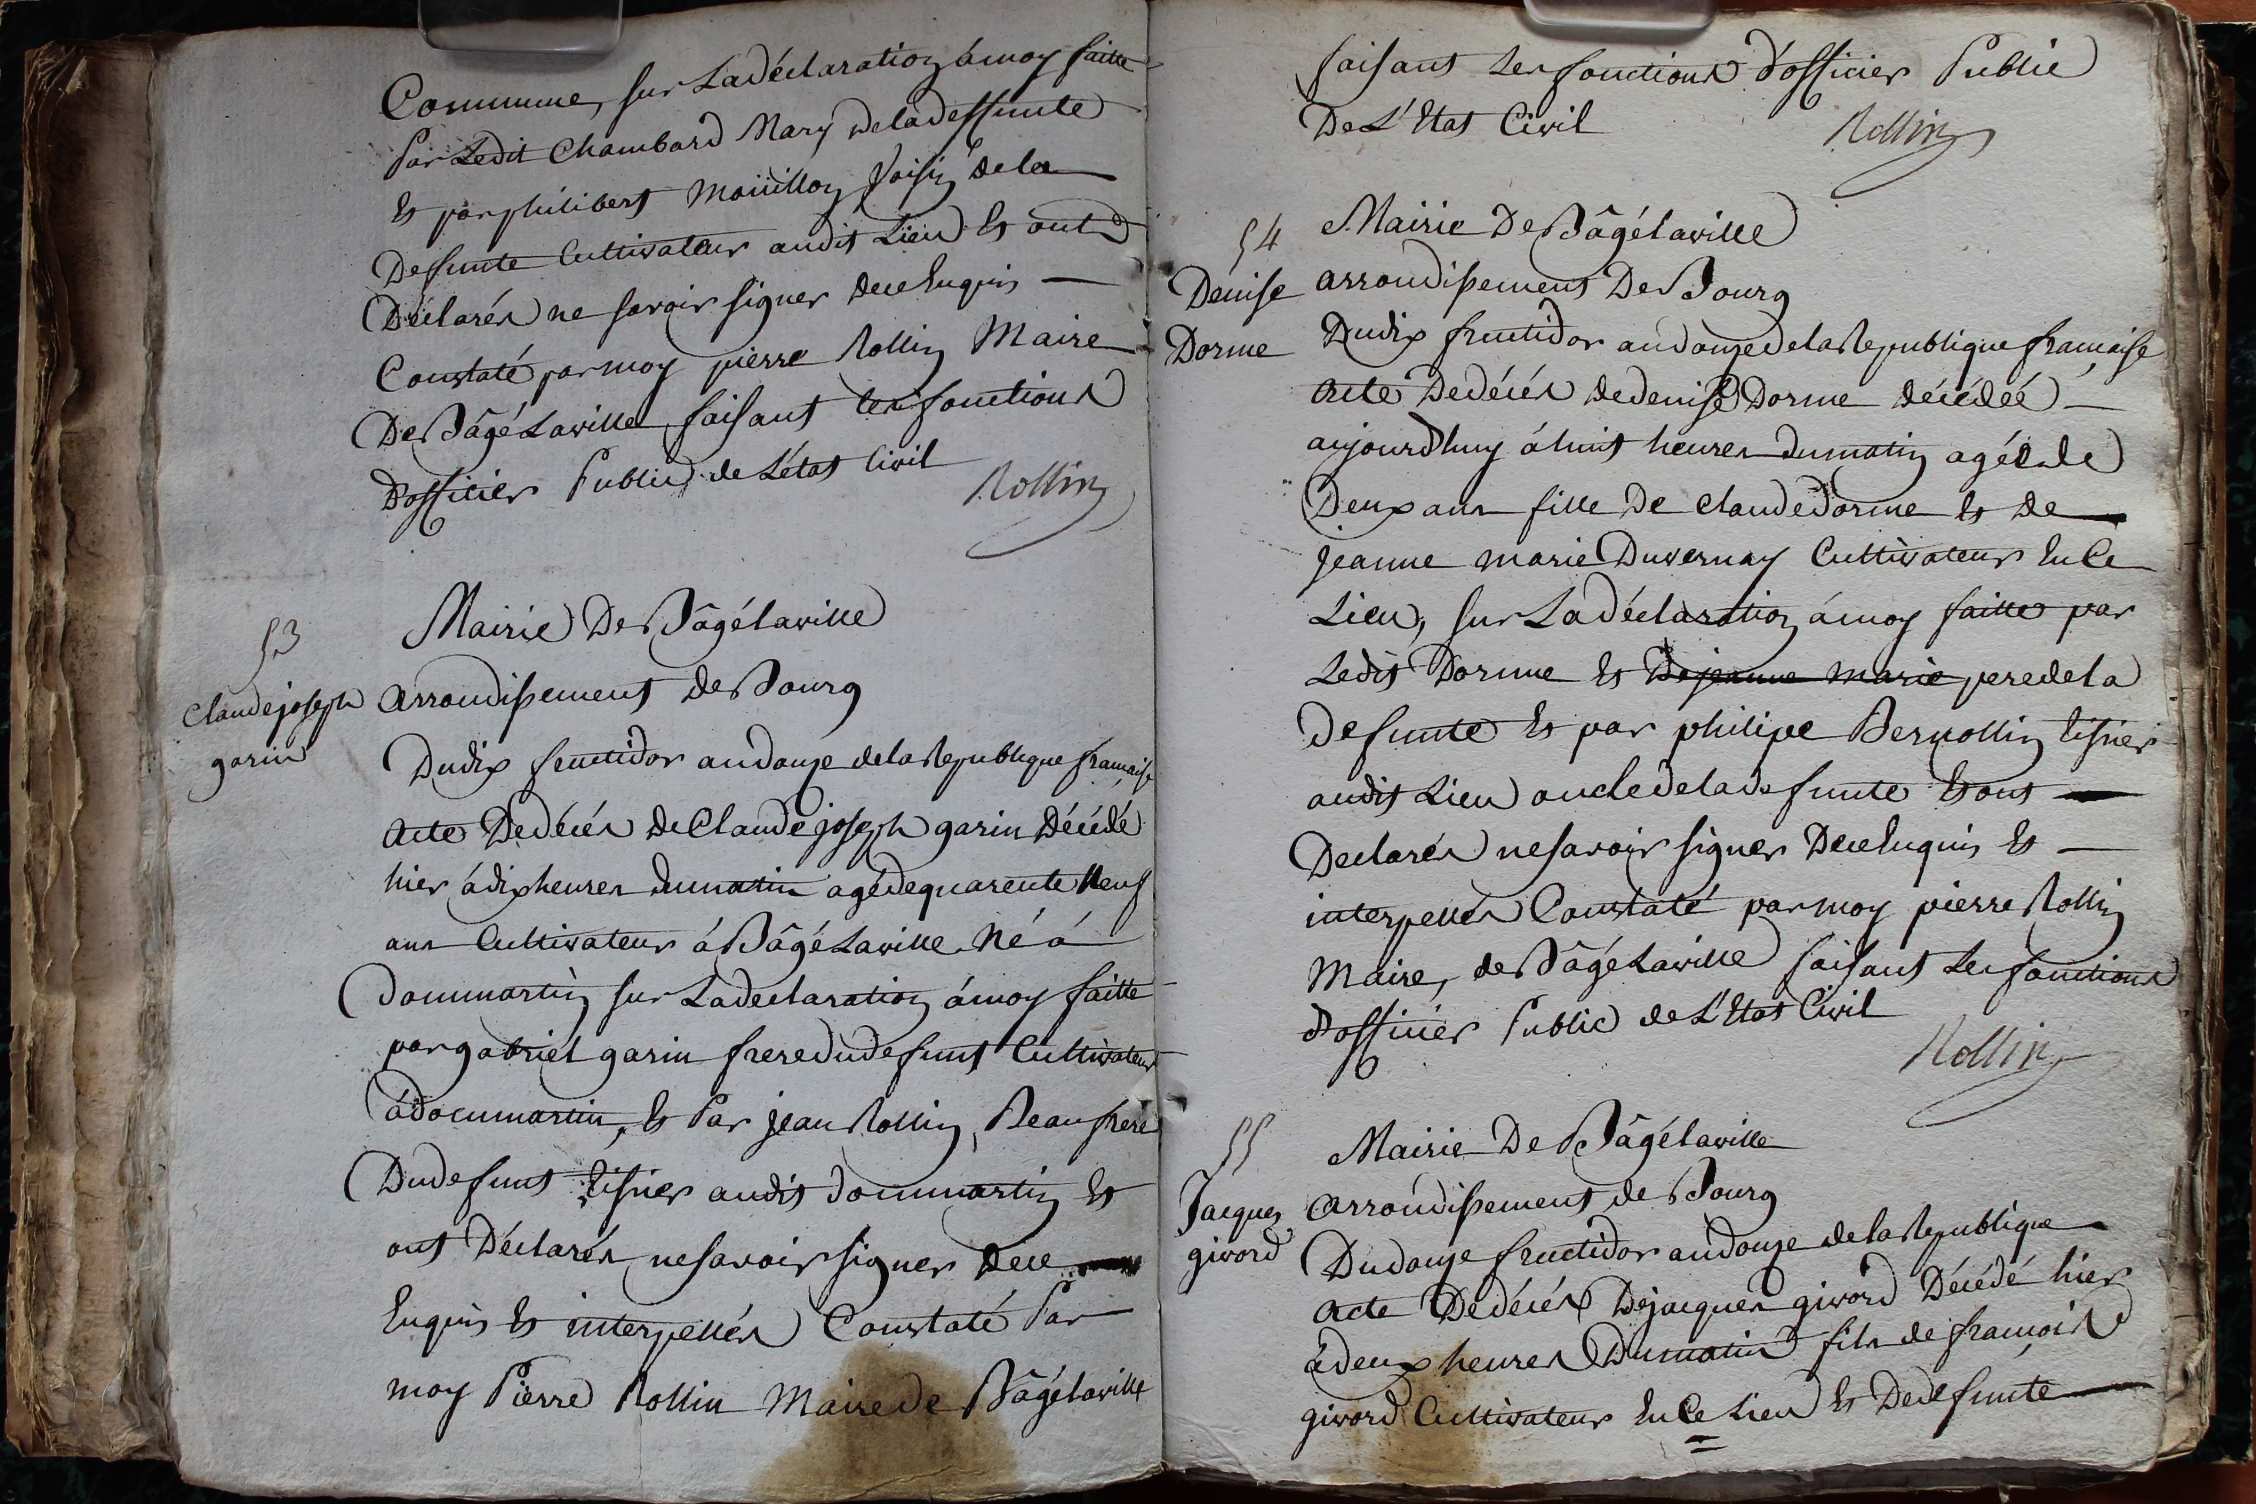 Commune, sur La déclaration à moy faitte
Par Ledit Chambard Mary de la deffunte
Et par philibert Moüillon Voisin de la
Defunte Cultivateur audit Lieu Et ont
Déclarés ne savoir signer de ce Enquis
Constaté par moy pierre Rollin Maire
De Bâgé Laville faisant les fonctions
D'officier Public de L'état Civil
Rollin
53
Claude joseph
garin
Mairie De Bâgélaville
arrondissement de Bourg
Du dix fructidor an douze de la Republique française
Acte De décés de Claude joseph garin Décédé
hier à dix heures du matin agé de quarente Neuf
ans Cultivateur á Bâgé Laville Né á
Dommartin sur La declaration á moy faitte
par gabriel garin frere du defunt Cultivateur
á dommartin, Et Par jean Rollin, Beaufrere
Du defunt tisner audit dommartin Et
ont Déclarés ne savoir signer de ce
Enquis Et interpellés Constaté Par
moy Pierre Rollin Maire de Bâgélaville
faisant Les fonctions d'officier Public
De L'Etat Civil
Rollin
54
Denise
Dorme
Mairie De Bâgélaville
arrondissement De Bourg
Du dix fructidor an douze de la Republique francaise
Acte De décés de denise Dorme décédéé
aujourdhuy á huit heures du matin agéé de
Deux ans fille De Claude dorme Et de
jeanne marie Duvernay Cultivateur En Ce
Lieu, sur La déclaration á moy faitte par
Ledit Dorme Et De jeanne Marie pere de la
defunte Et par philipe Bernollin tisner
audit Lieu oncle de la defunte Et ont
Declarés ne savoir signer De ce Enquis Et
interpellés Constaté par moy pierre Rollin
Maire, de Bâgé Laville faisant Les fonctions
d'officier Public de L'Etat Civil
Rollin
55
Jacques
givord
Mairie De Bâgélaville
arrondissement de Bourg
Du douze fructidor an douze de la Republique
Acte De décés De jacques givord Décédé hier
á deux heures Du matin fils de francois
givord Cultivateur En Ce Lieu Et De defunte